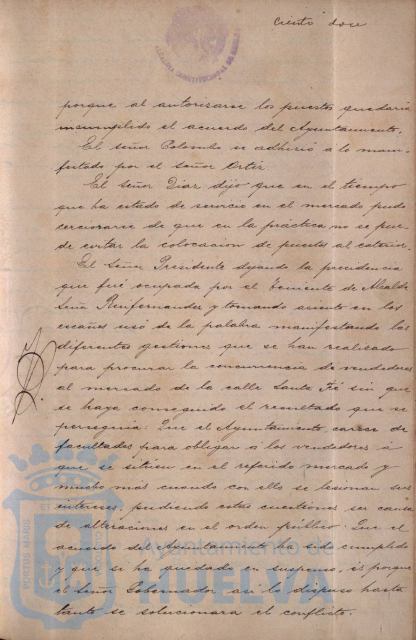 Ciento doce
porque al autorizarse los puestos quedaria
incumplido el acuerdo del Ayuntamiento.
El señor Colombo se adhirió a lo mani-
festado por el señor Ortiz.
El señor Diaz dijo que en el tiempo
que ha estado de servicio en el mercado pudo
cerciorarse de que en la práctica no se pue-
de evitar la colocacion de puestos al exterior.
El Señor Presidente dejando la presidencia
que fué ocupada por el Teniente de Alcalde
Señor y tomando asiento en los
escaños usó de la palabra manifestando las
diferentes gestiones que se han realizado
para procurar la concurrencia de vendedores
al mercado de la calle Santa Fé sin que
se haya conseguido el resultado que se
perseguia: Que el Ayuntamiento carece de
facultades para obligar á los vendedores á
que se sitúen en el referido mercado y
mucho más cuando con ello se lesionan sus
intereses, pudiendo estas cuestiones ser causa
de alteraciones en el orden público: Que el
acuerdo del Ayuntamiento ha sido cumplido
y que si ha quedado en suspenso, és porque
el Señor Gobernador, asi lo dispuso hasta
tanto se solucionara el conflicto.
Ayuntamiento de
HUELVA
PORTUS MARIS